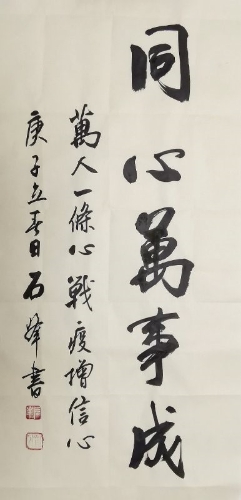 同心萬事成
萬人一條心戰疫增信心
庚子立春日石峰書